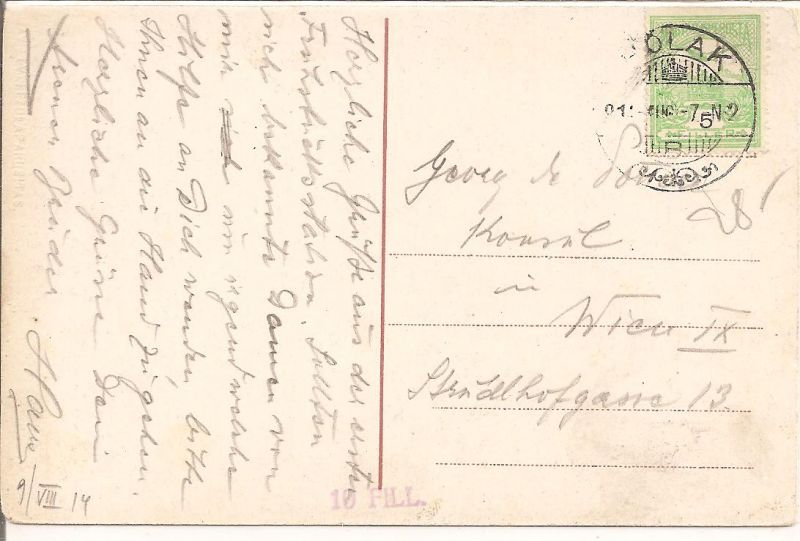 Herzliche Grüße aus der ersten
Frühstückstation. Sollten
sich bekannte Damen von
mir um irgendwelche
Hilfe an Dich wenden bitte
Ihnen an die Hand zu gehen.
Herzliche Grüsse Dein
Bruder
Hans
9/VIII 14
Georg de
Konsul
in
Wien IX
Strudlhofgasse 13.
28
OLAK
FILLER
5
B
10 FILL.